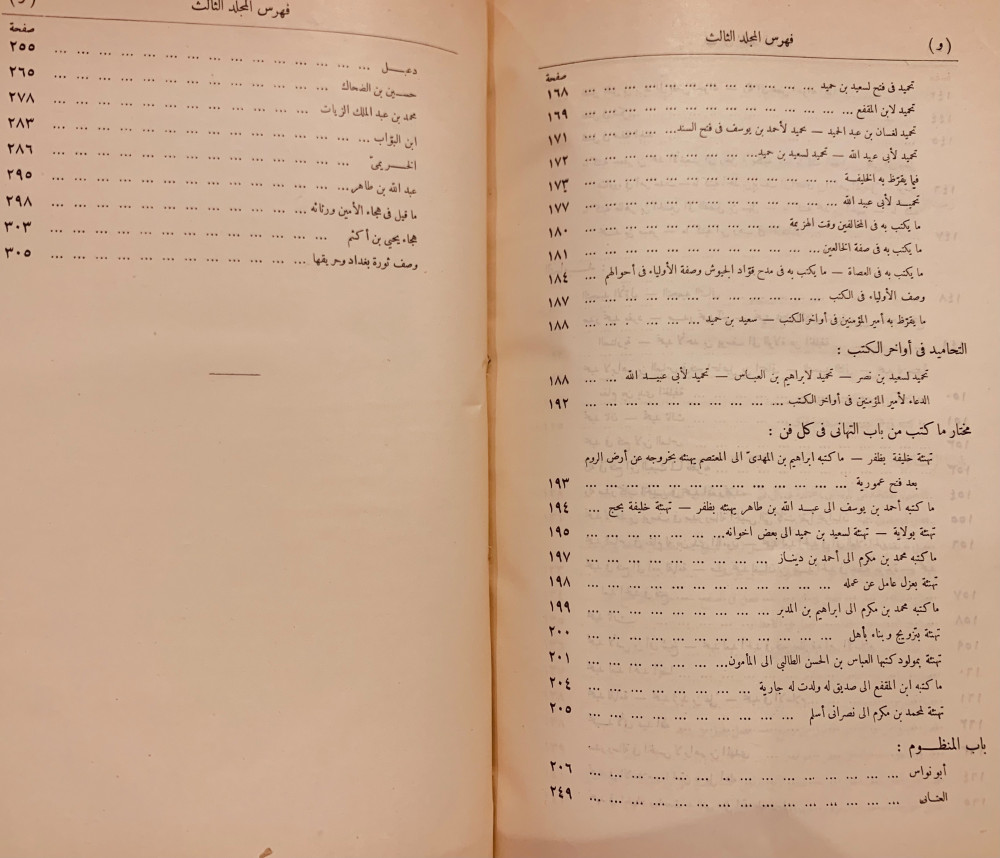 (و)
فهرس المجلد الثالث
صفحة
تحميد فى فتح لسعيد بن حميد ... ... ... ... ... ... ... ... ... ... ... ١٦٨
تحميد لابن المقفع ... ... ... ... ... ... ... ... ... ... ... ... ١٦٩
تحميد لغسان بن عبد الحميد — تحميد لأحمد بن يوسف فى فتح السند... ... ... ... ... ١٧١
تحميد لأبى عبيد الله — تحميد لسعيد بن حميد... ... ... ... ... ... ... ... ... ١٧٢
فيما يقرّظ به الخليفة ... ... ... ... ... ... ... ... ... ... ... ... ١٧٣
تحميد لأبى عبيد الله ... ... ... ... ... ... ... ... ... ... ... ... ١٧٧
ما يكتب به فى المخالفين وقت الهزيمة ... ... ... ... ... ... ... ... ... ١٨٠
ما يكتب به فى صفة الخالعين... ... ... ... ... ... ... ... ... ... ... ١٨١
ما يكتب به فى العصاة — ما يكتب به فى مدح قوّاد الجيوش وصفة الأولياء فى أحوالهم ... ١٨٤
وصف الأولياء فى الكتب ... ... ... ... ... ... ... ... ... ... ... ١٨٧
ما يقرّظ به أمير المؤمنين فى أواخر الكتب — سعيد بن حميد ... ... ... ... ... ... ١٨٨
التحاميد فى أواخر الكتب :
تحميد لسعيد بن نصر — تحميد لابراهيم بن العباس — تحميد لأبى عبيد الله ... ... ١٨٨
الدعاء لأمير المؤمنين فى أواخر الكتب ... ... ... ... ... ... ... ... ... ١٩٢
مختار ما كتب من باب التهانى فى كل فن :
تهنئة خليفة بظفر — ما كتبه ابراهيم بن المهدىّ الى المعتصم يهنئه بخروجه عن أرض الروم
بعد فتح عمورية ... ... ... ... ... ... ... ... ... ... ... ... ١٩٣
ما كتبه أحمد بن يوسف الى عبد الله بن طاهر يهنئه بظفر — تهنئة خليفة بحج ... ١٩٤
تهنئة بولاية — تهنئة لسعيد بن حميد الى بعض اخوانه... ... ... ... ... ... ... ١٩٥
ما كتبه محمد بن مكرم الى أحمد بن دينار ... ... ... ... ... ... ... ... ... ١٩٧
تهنئة بعزل عامل عن عمله ... ... ... ... ... ... ... ... ... ... ... ١٩٨
ما كتبه محمد بن مكرم الى ابراهيم بن المدبر ... ... ... ... ... ... ... ... ... ١٩٩
تهنئة بتزويج وبناء بأهل ... ... ... ... ... ... ... ... ... ... ... ٢٠٠
تهنئة بمولود كتبها العباس بن الحسن الطالبى الى المأمون... ... ... ... ... ... ... ٢٠١
ما كتبه ابن المقفع الى صديق له ولدت له جارية ... ... ... ... ... ... ... ... ٢٠٤
تهنئة لمحمد بن مكرم الى نصرانى أسلم ... ... ... ... ... ... ... ... ... ... ٢٠٥
باب المنظـــوم :
أبو نواس ... ... ... ... ... ... ... ... ... ... ... ... ... ... ٢٠٦
العتابى ... ... ... ... ... ... ... ... ... ... ... ... ... ... ٢٤٩
فهرس المجلد الثالث
صفحة
دعبــل ... ... ... ... ... ... ... ... ... ... ... ... ... ... ٢٥٥
حسـين بن الضحاك ... ... ... ... ... ... ... ... ... ... ... ... ٢٦٥
محمد بن عبد الملك الزيات ... ... ... ... ... ... ... ... ... ... ... ٢٧٨
ابن البوّاب ... ... ... ... ... ... ... ... ... ... ... ... ... ٢٨٣
الخـريمىّ ... ... ... ... ... ... ... ... ... ... ... ... ... ٢٨٦
عبد الله بن طاهر... ... ... ... ... ... ... ... ... ... ... ... ... ٢٩٥
ما قيل فى هجاء الأمين ورثائه ... ... ... ... ... ... ... ... ... ... ... ٢٩٨
هجاء يحيى بن أكثم ... ... ... ... ... ... ... ... ... ... ... ... ٣٠٣
وصف ثورة بغداد وحريقها ... ... ... ... ... ... ... ... ... ... ... ٣٠٥